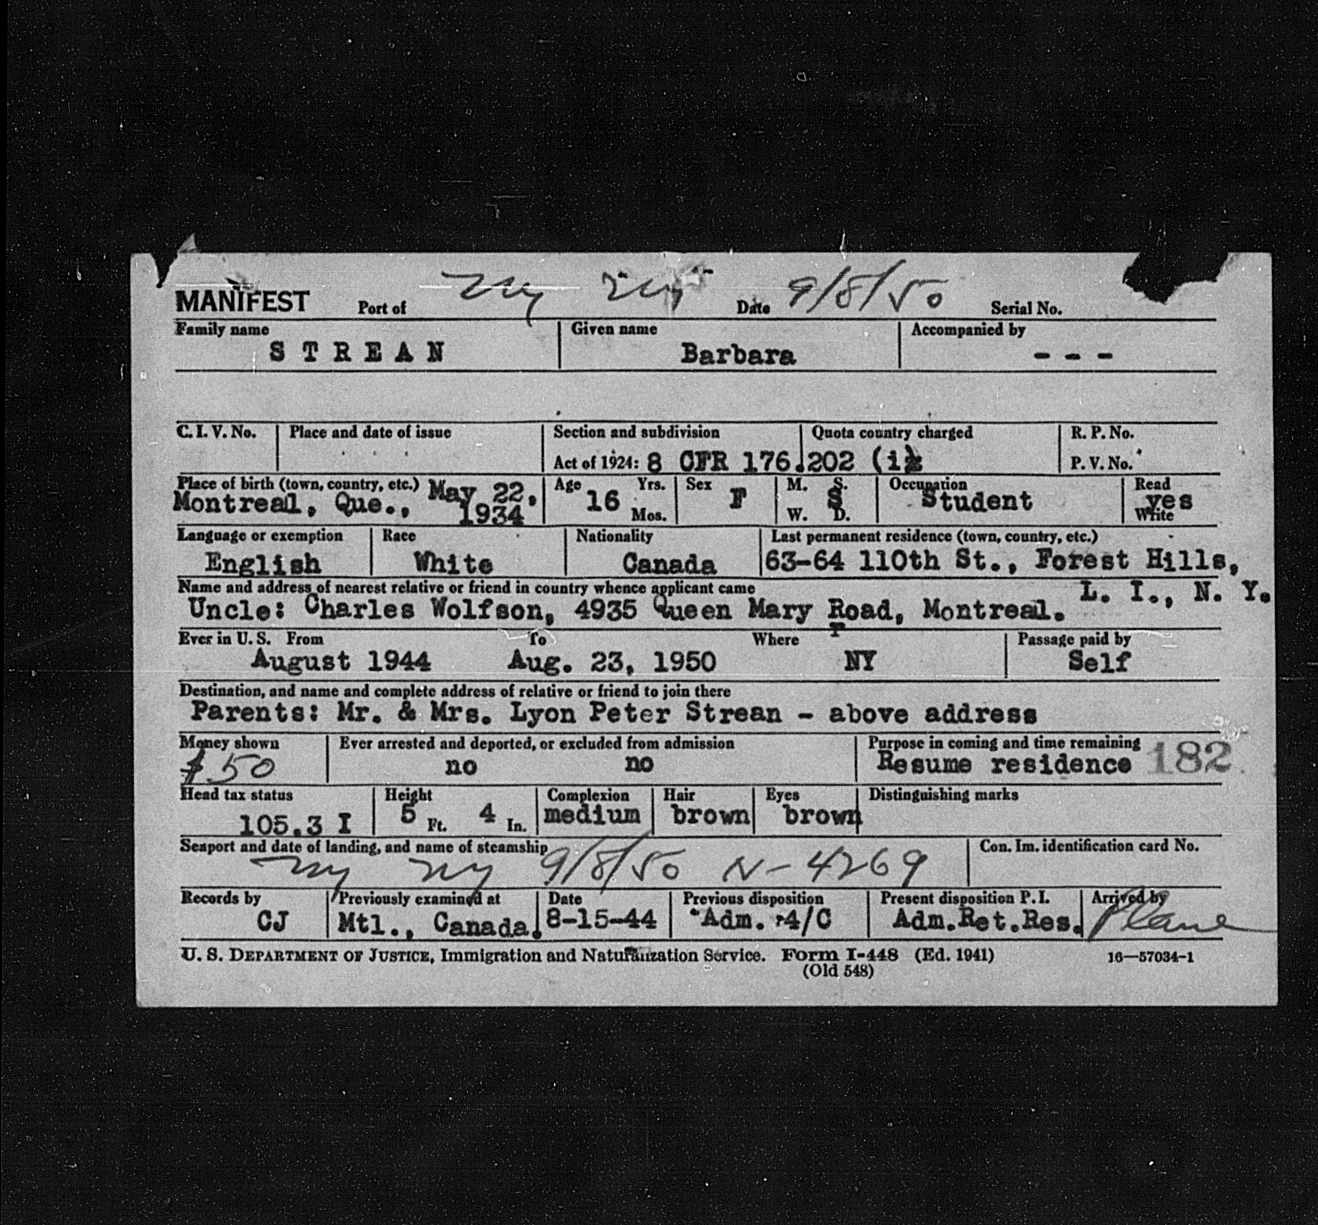 MANIFEST Port of NY NY Date 9/8/50 Serial No.
Family name Given name Accompanied by
STREAN Barbara - - -
C. I. V. No. Place and date of issue Section and subdivision Quota country charged R. P. No.
Act of 1924: 8 CFR 176.202 P. V. No.
Place of birth (town, country, etc.) May 22, Age Yrs. Sex M. S. Occupation Read
Montreal, Que., 1934 16 Mos. F W. D. S Student yes Write
Language or exemption Race Nationality Last permanent residence (town, country, etc.)
English White Canada 63-64 110th St., Forest Hills,
Name and address of nearest relative or friend in country whence applicant came L. I., N. Y.
Uncle: Charles Wolfson, 4935 Queen Mary Road, Montreal.
Ever in U. S. From To Where Passage paid by
August 1944 Aug. 23, 1950 NY Self
Destination, and name and complete address of relative or friend to join there
Parents: Mr. & Mrs. Lyon Peter Strean - above address
Money shown Ever arrested and deported, or excluded from admission Purpose in coming and time remaining
$50 no no Resume residence 182
Head tax status Height Complexion Hair Eyes Distinguishing marks
105.3 I 5 Ft. 4 In. medium brown brown
Seaport and date of landing, and name of steamship Con. Im. identification card No.
NY NY 9/8/50 N-4269
Records by Previously examined at Date Previous disposition Present disposition P. I. Arrived by
CJ Mtl., Canada. 8-15-44 Adm. 4/C Adm.Ret.Res. Plane
U. S. DEPARTMENT OF JUSTICE, Immigration and Naturalization Service. Form I-448 (Ed. 1941) 16—57034-1
(Old 548)